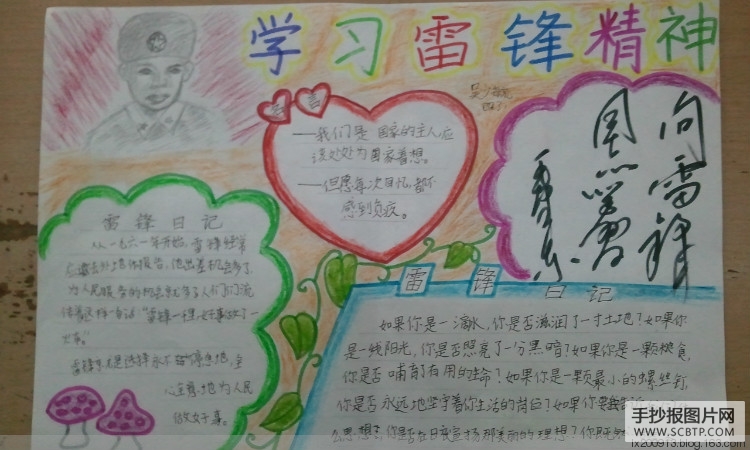 学习雷锋精神
言言
——我们是国家的主人应
该处处为国家着想。
——但愿每次回忆,都不
感到负疚。
向雷锋
同志学习
毛泽东
雷锋日记
从一九六一年开始,雷锋经常
应邀去外地作报告,他出差机会多了,
为人民服务的机会就多了,人们
流传着这样一句话:“雷锋一
火车。”
地,全
心全意地为人民
做好事。
雷锋日记
如果你是一滴水,你是否滋润了一寸土地?如果你
是一线阳光,你是否照亮了一分黑暗?如果你是一颗粮食,
你是否哺育了有用的生命?如果你是一颗最小的螺丝钉,
你是否永远地坚守着你生活的岗位?如果你要告诉
么思想,你是否在日夜宣扬那美丽的理想?你既
手抄报图片网
WWW.SCBTP.COM
lx200913.blog.163.com